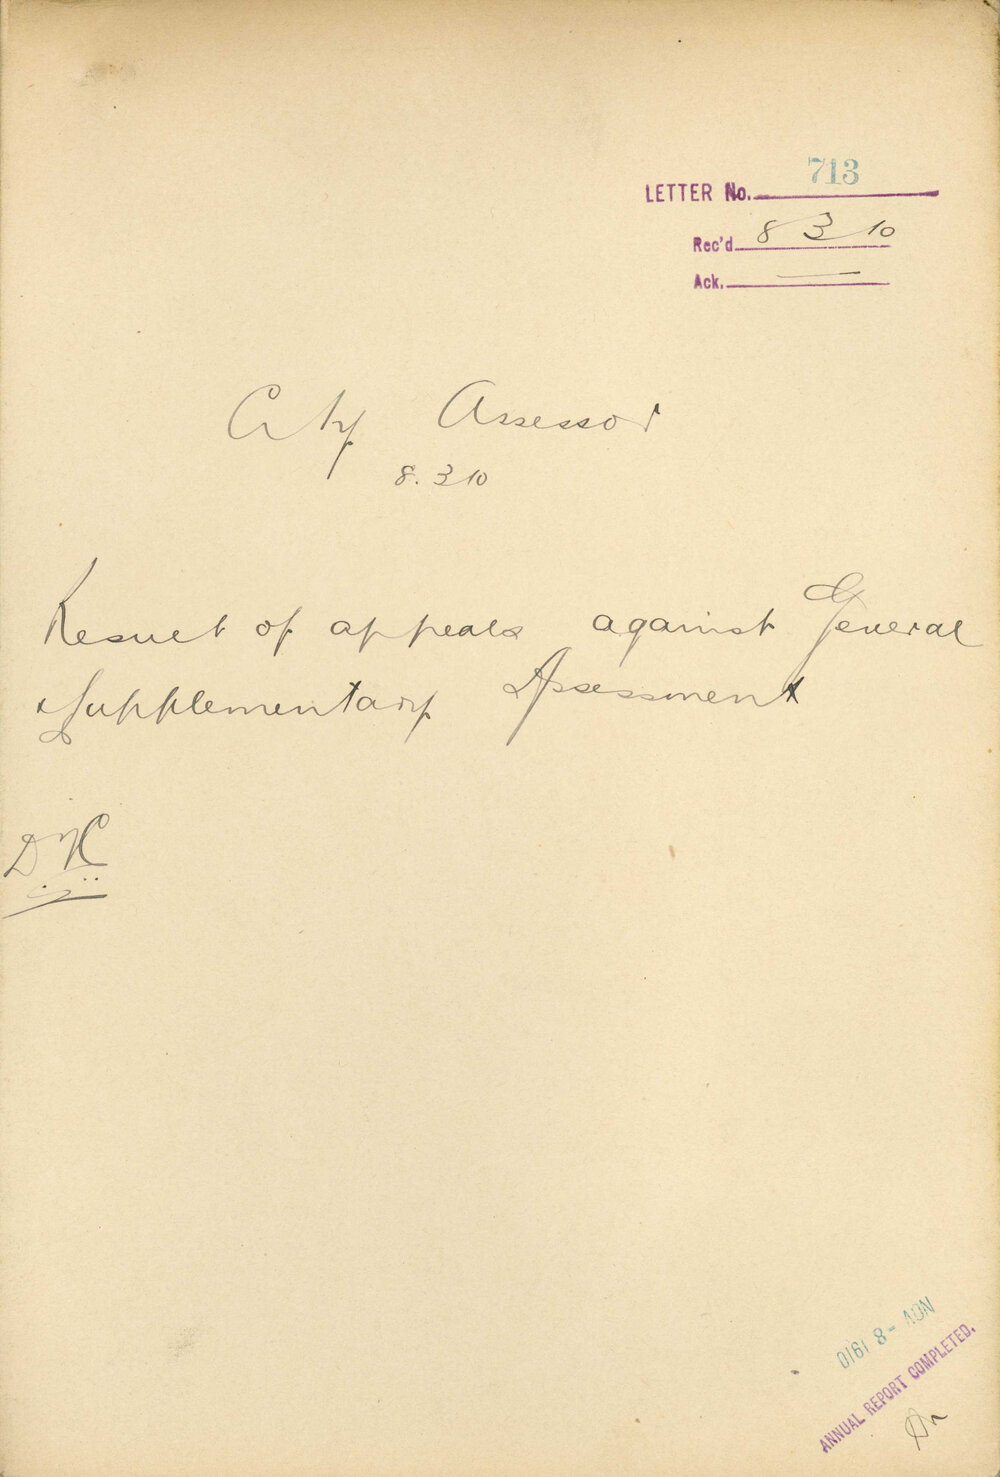 LETTER No. 713
Rec'd 8 3 10
Ack.
City Assessor
8.3 10
Result of appeals against General
Supplementary Assessment
NOV - 8 1910
ANNUAL REPORT COMPLETED.